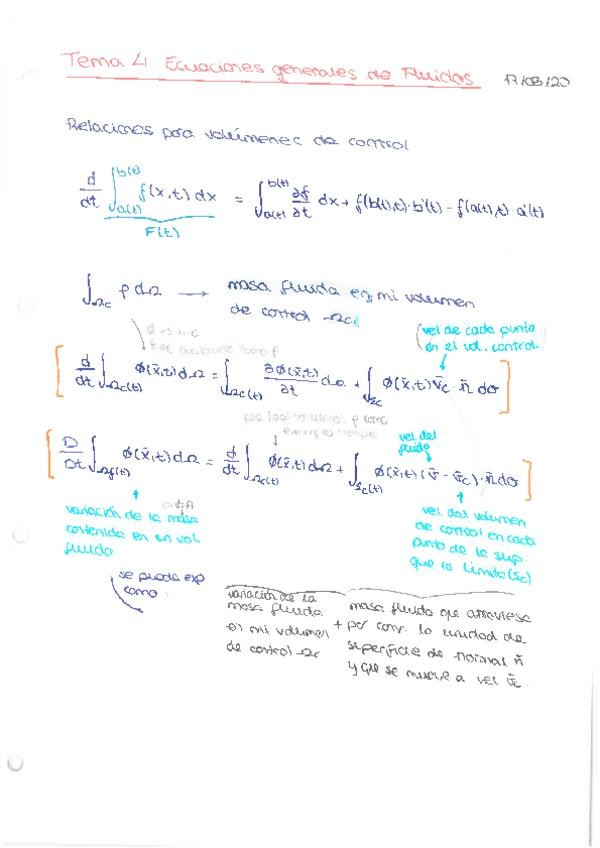 Tema 4 Ecuaciones generales de Fluidos 17/03/20
Relaciones para volúmenes de control
d/dt ∫_{a(t)}^{b(t)} f(x,t) dx = ∫_{a(t)}^{b(t)} ∂f/∂t dx + f(b(t),t)·b'(t) - f(a(t),t)·a'(t)
F(t)
∫_{Ωc} ρ dΩ → masa fluida en mi volumen
de control Ωc
(vel de cada punto
en el vol. control.
d/dt ∫_{Ωc(t)} φ(x̄,t) dΩ = ∫_{Ωc(t)} ∂φ(x̄,t)/∂t dΩ + ∫_{Σc} φ(x̄,t) v̄c · n̄ dσ
vel del
fluido
D/Dt ∫_{Ωf(t)} φ(x̄,t) dΩ = d/dt ∫_{Ωc(t)} φ(x̄,t) dΩ + ∫_{Σc(t)} φ(x̄,t) (v̄ - v̄c) · n̄ dσ
variación de la masa
contenida en un vol
fluido
vel del volumen
de control en cada
punto de la sup.
que lo limita (Sc)
se puede exp
como:
variación de la
masa fluida
en mi volumen +
de control Ωc
masa fluida que atraviesa
por la unidad de
superficie de normal n̄
y que se mueve a vel v̄c.